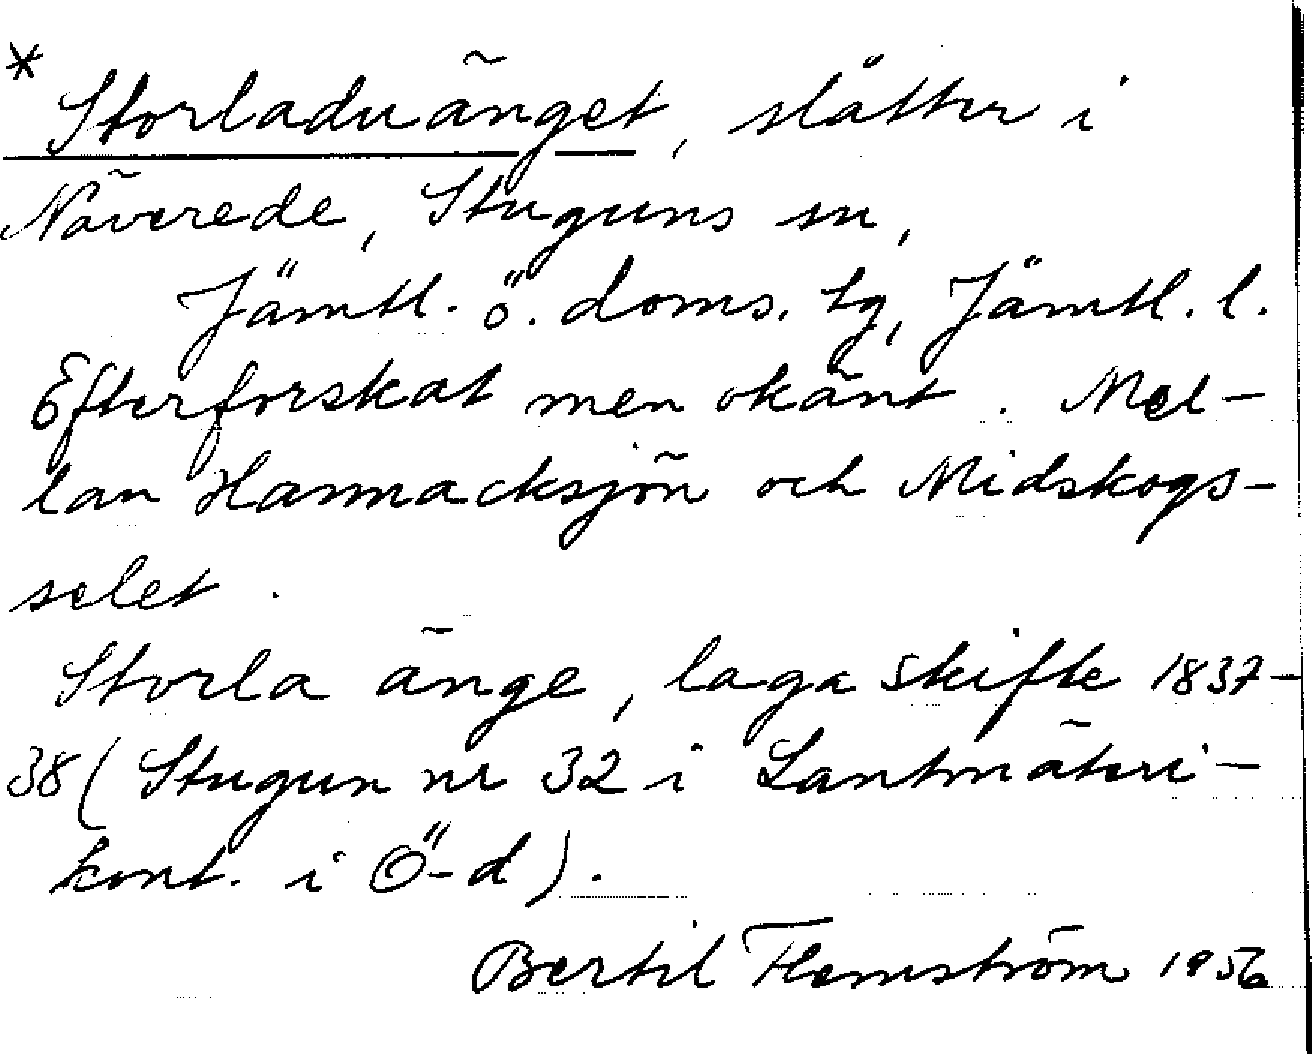 * Storladuänget, slåtter i
Näverede, Stuguns sn,
Jämtl. ö. doms. tg, Jämtl. l.
Efterforskat men okänt. Mel-
lan Hammacksjön och Midskogs-
selet.
Storla änge, laga skifte 1837-
38 (Stugun nr 32 i Lantmäteri-
kont. i Ö-d).
Bertil Flemström 1956